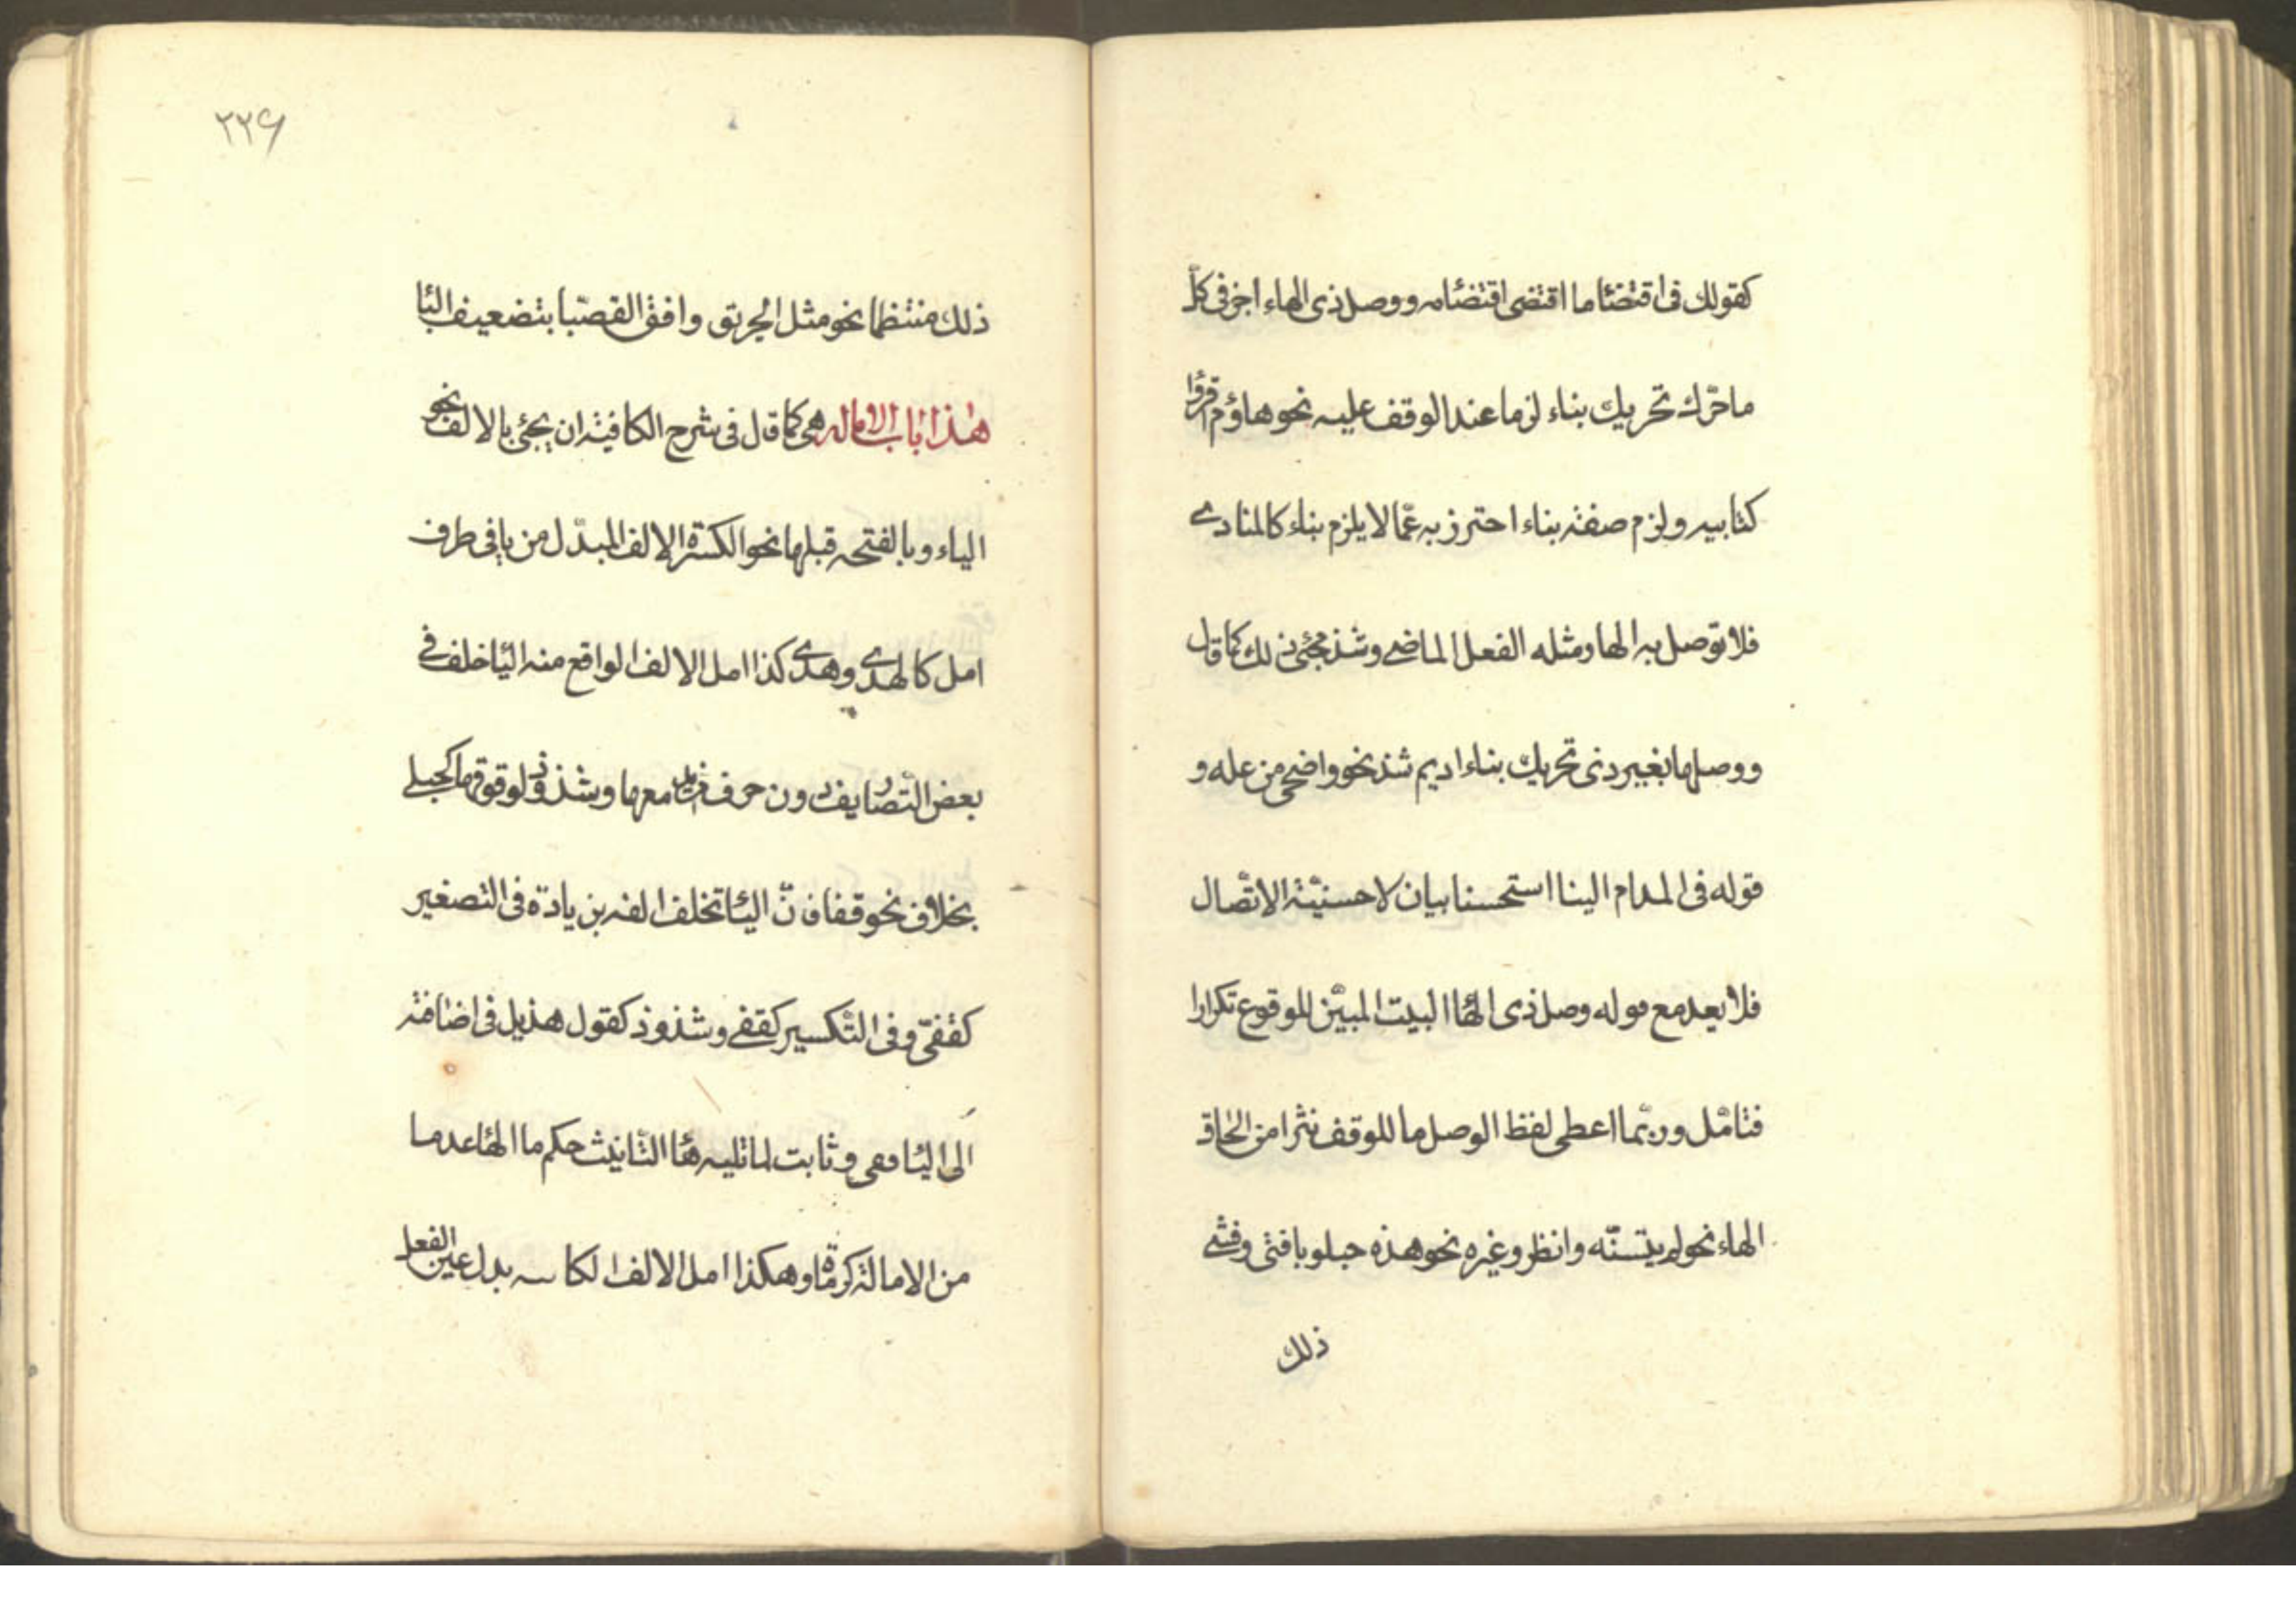 كقولك فى اقتضئا ما اقتضى اقتضئامه ووصل ذى الهاء اجز فى كلّ
ما حرّك تحريك بناء لزما عند الوقف عليه نحو هاؤم اقرؤا
كتابيه ولزم صفة بناء احترز به عمّا لا يلزم بناء كالمنادى
فلا توصل به الها ومثله الفعل الماضى وشذ مجئ ذلك كما قال
ووصلها بغير ذى تحريك بناء اديم شذ نحو واضحى من عله و
قوله فى المدام الينا استحسنا بيان لاحسنيّة الاتّصال
فلا يعد مع قوله وصل ذى الهئا البيت المبيّن للوقوع تكرارا
فتامّل وربّما اعطى لفظ الوصل ما للوقف نثرا من الحاق
الهاء نحو لم يتسنّه وانظر وغيره نحو هذه حبلو يا فتى وفشى
ذلك
٢٢٦
ذلك منتظما نحو مثل الحريق وافق القصّبا بتضعيف البئا
هذا باب الاماله هى كما قال فى شرح الكافية ان يجئ بالالف نحو
الياء وبالفتحه قبلها نحو الكسرة الالف المبدّل من يا فى طرف
امل كالهدى وهدى كذا امل الالف الواقع منه اليئا خلف فى
بعض التّصاريف دون حرف مزيد معها وشذوذ لوقوعها كحبلى
بخلاف نحو قفا فانّ اليئا تخلف الفه بزيادة فى التصغير
كقفىّ وفى التّكسير كقفى وشذوذ كقول هذيل فى اضافته
الى اليئا قفى وثابت لما تليه هئا التّانيث حكم ما الهئا عدما
من الامالة كرماة وهكذا امل الالف الكا سه بدل عين الفعل